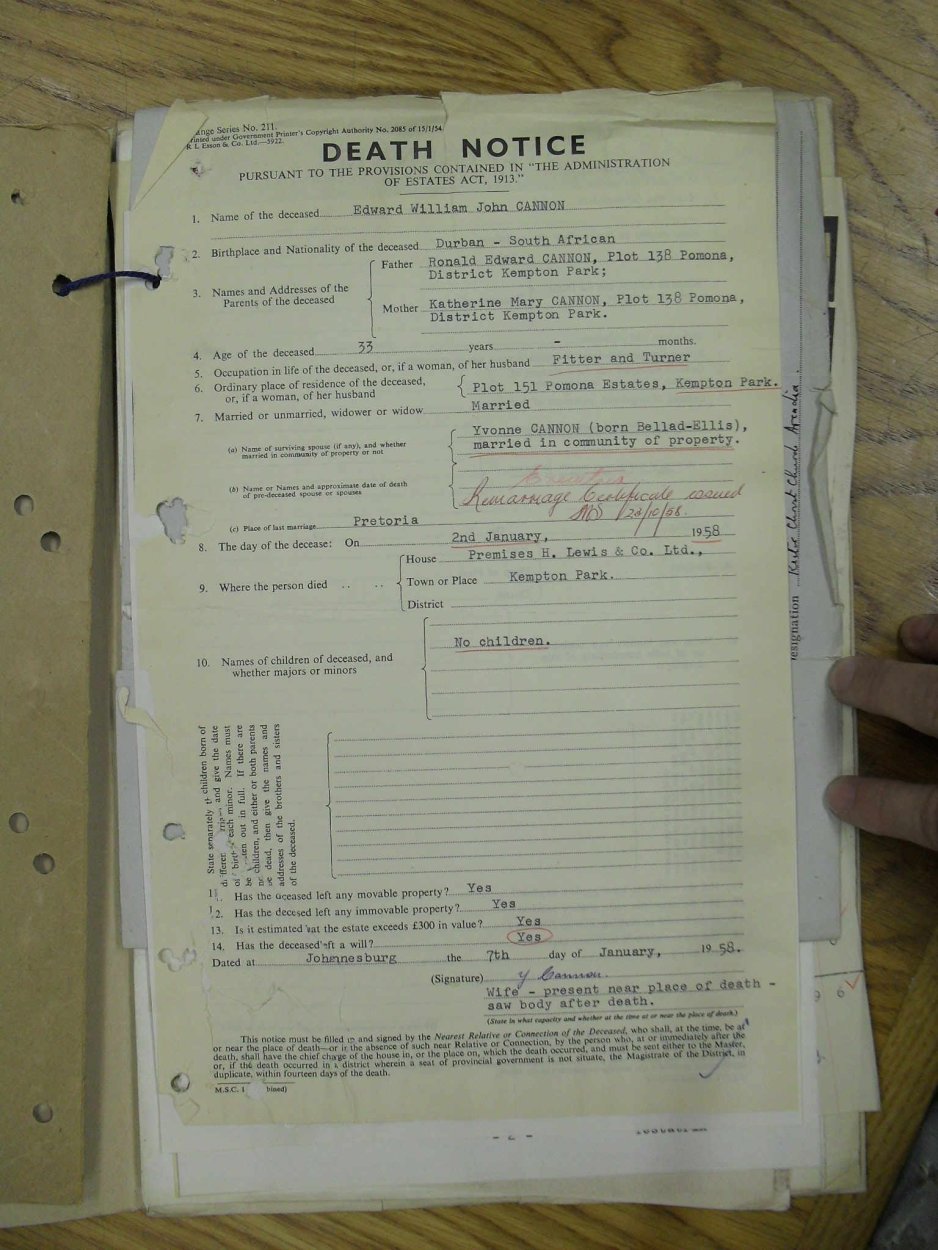 ange Series No. 211.
rinted under Government Printer's Copyright Authority No. 2085 of 15/1/54
R L Esson & Co. Ltd.—5922.
DEATH NOTICE
PURSUANT TO THE PROVISIONS CONTAINED IN "THE ADMINISTRATION
OF ESTATES ACT, 1913."
1. Name of the deceased Edward William John CANNON
2. Birthplace and Nationality of the deceased Durban - South African
3. Names and Addresses of the Parents of the deceased
Father Ronald Edward CANNON, Plot 138 Pomona,
District Kempton Park;
Mother Katherine Mary CANNON, Plot 138 Pomona,
District Kempton Park.
4. Age of the deceased 33 years - months.
5. Occupation in life of the deceased, or, if a woman, of her husband Fitter and Turner
6. Ordinary place of residence of the deceased,
or, if a woman, of her husband Plot 151 Pomona Estates, Kempton Park.
7. Married or unmarried, widower or widow Married
(a) Name of surviving spouse (if any), and whether
married in community of property or not
Yvonne CANNON (born Bellad-Ellis),
married in community of property.
(b) Name or Names and approximate date of death
of pre-deceased spouse or spouses
Remarriage Certificate issued
23/10/58.
(c) Place of last marriage Pretoria
8. The day of the decease: On 2nd January, 1958
9. Where the person died .. ..
House Premises H. Lewis & Co. Ltd.,
Town or Place Kempton Park.
District
10. Names of children of deceased, and
whether majors or minors
No children.
State separately children born of
differen and give the date
of birth each minor. Names must
be en out in full. If there are
no children, and either or both parents
be dead, then give the names and
addresses of the brothers and sisters
of the deceased.
11. Has the deceased left any movable property? Yes
12. Has the decesed left any immovable property? Yes
13. Is it estimated that the estate exceeds £300 in value? Yes
14. Has the deceased left a will? Yes
Dated at Johnnesburg the 7th day of January, 1958.
(Signature) Y Cannon.
Wife - present near place of death -
saw body after death.
(State in what capacity and whether at the time at or near the place of death.)
This notice must be filled in and signed by the Nearest Relative or Connection of the Deceased, who shall, at the time, be at
or near the place of death—or in the absence of such near Relative or Connection, by the person who, at or immediately after the
death, shall have the chief charge of the house in, or the place on, which the death occurred, and must be sent either to the Master,
or, if the death occurred in a district wherein a seat of provincial government is not situate, the Magistrate of the District, in
duplicate, within fourteen days of the death.
M.S.C. 1 bined)
esignation Rector Christ Church Arcadia
9 6
- 2 -